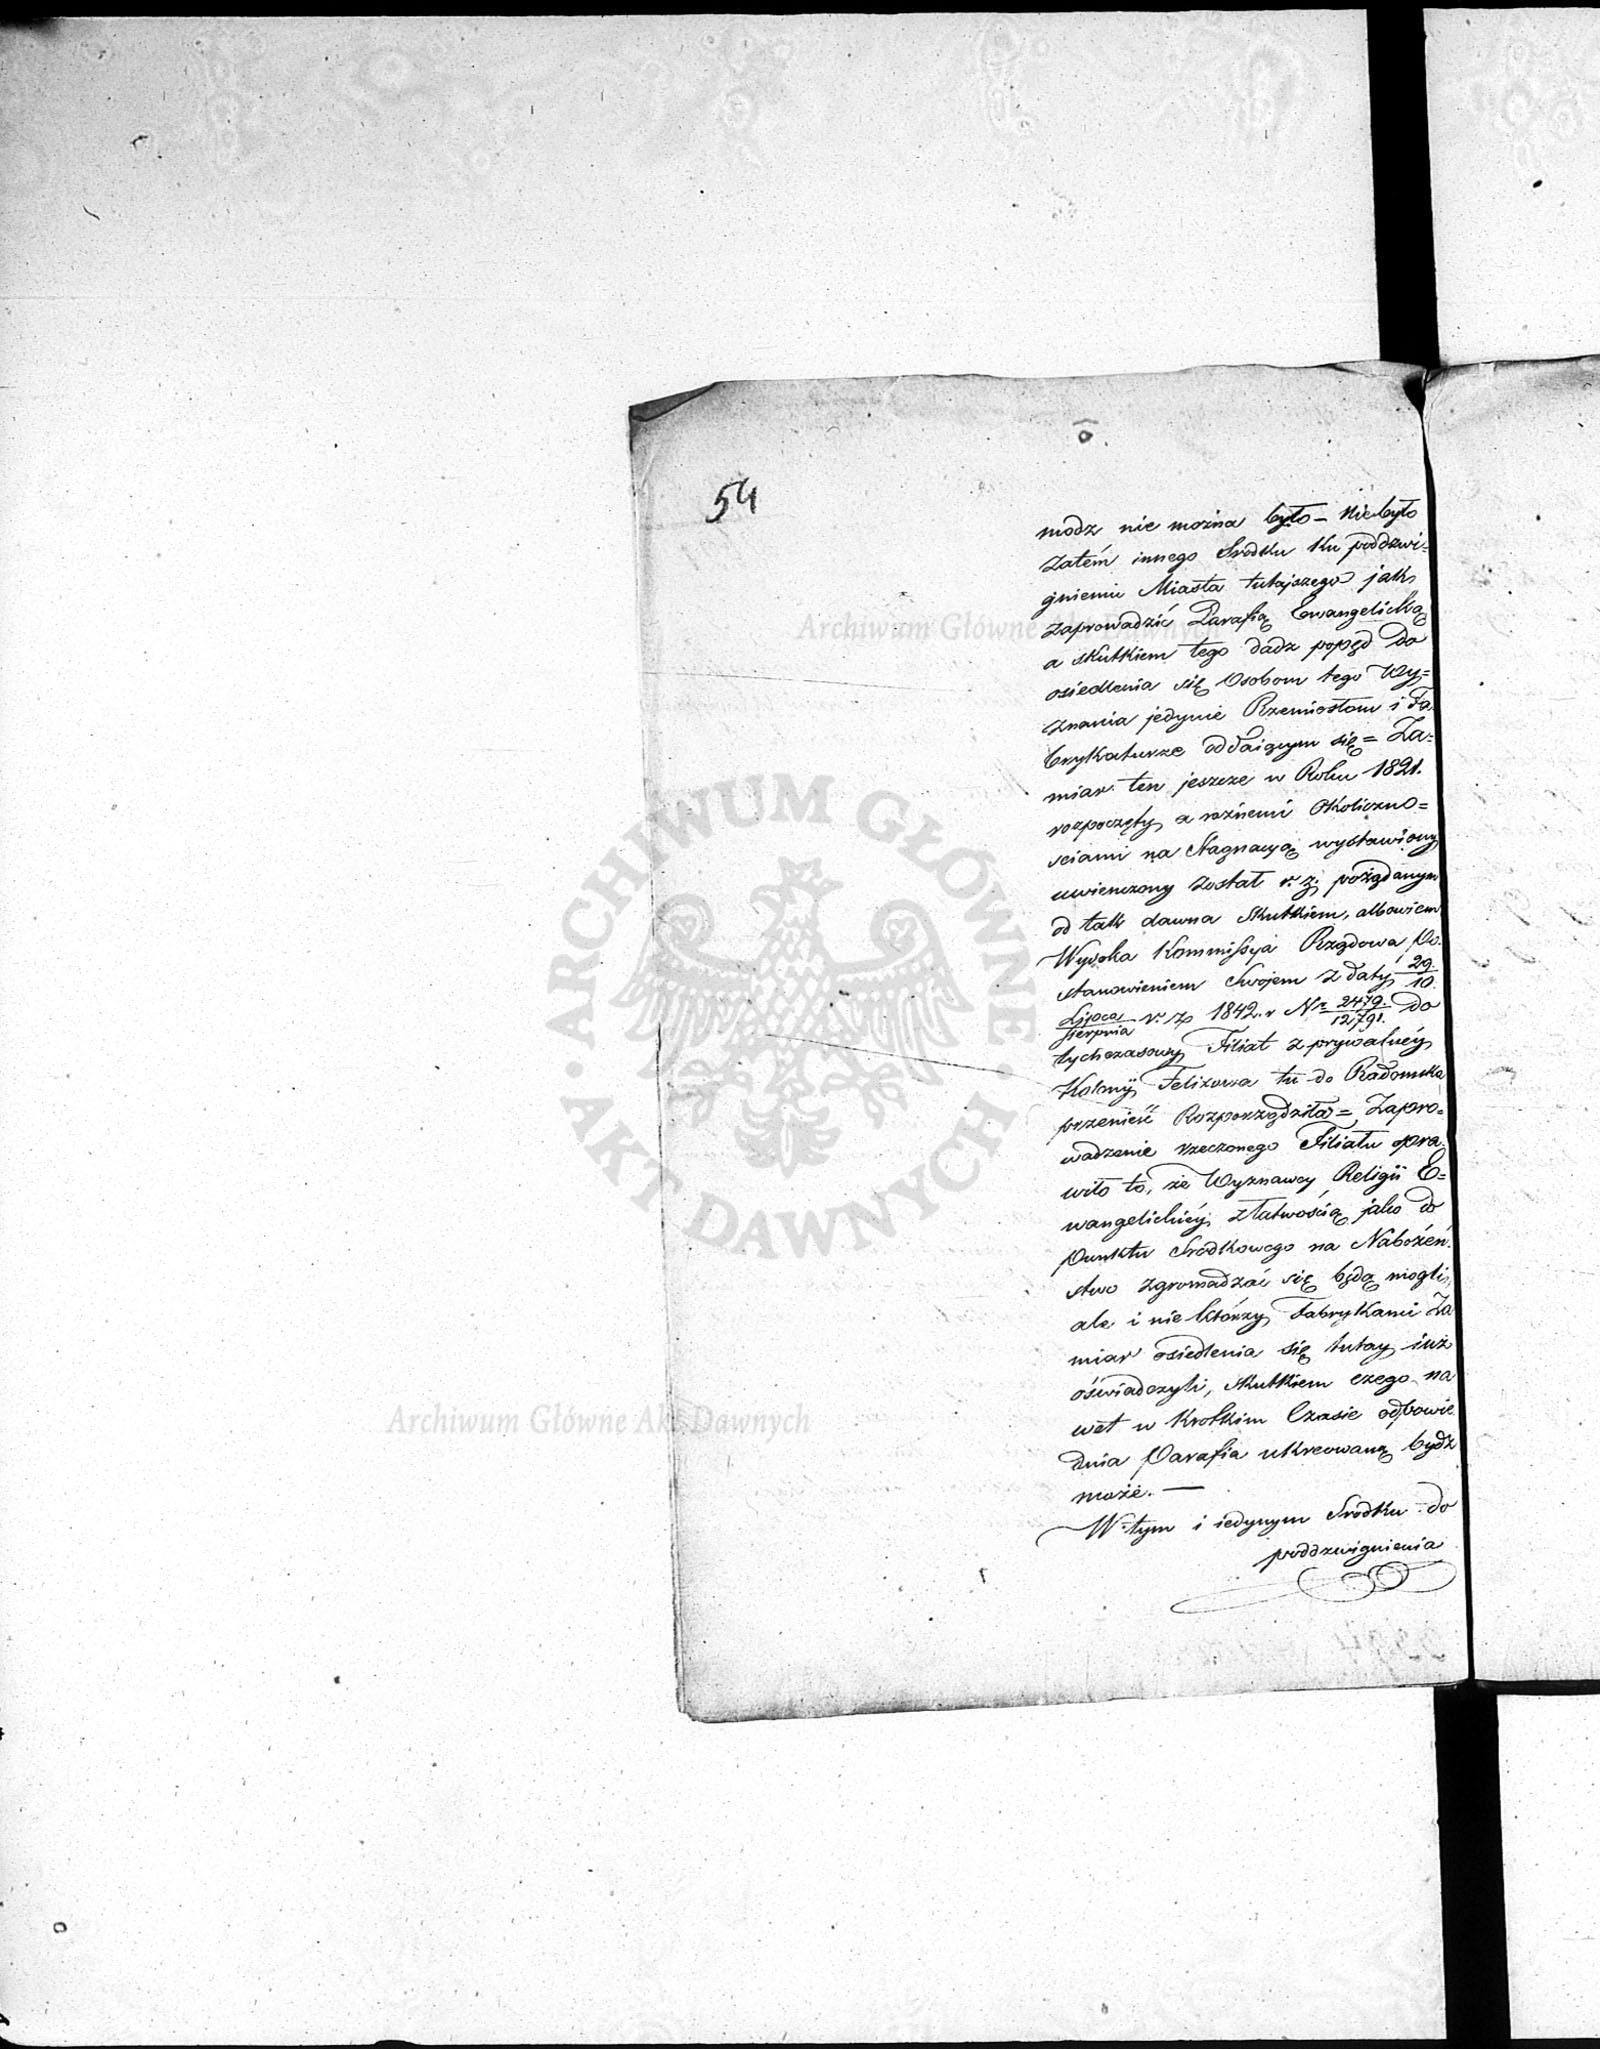 54
modz nie można było – Niebyło
Zatém innego Srodku ku poddzwi=
gnieniu Miasta tutajszego jak
zaprowadzić Parafią Ewangelicką
a skutkiem tego dadz popęd do
osiedlenia się Osobom tego Wy=
znania jedynie Rzemiosłom i Fa
brykaturze oddaiącym się = Za=
miar ten jeszcze w Roku 1821.
rozpoczęty a raźnemi Okoliczno=
sciami na Stagnacyą wystawiony
uwienczony został r. z. pożądanym
od tak dawna Skutkiem, albowiem
Wysoka Kommissya Rządowa Po
stanowieniem Swojem z daty 29/10
Lipca/Sierpnia r. z. 1842. r Nr 2479/12791. do
tychczasowy Filiał z prywatnéy
Kolonÿ Felixowa tu do Radomska
przenieść Rozporządziła = Zapro=
wadzenie rzeczonego Filiału spra
wiło to, że Wyznawcy Religii E=
wangelickiéy złatwością jako do
Punktu Srodkowego na Nabożeń
stwo zgromadzać się będą mogli,
ale i nie którzy Fabrykami Za
miar osiedlenia się tutay iuż
óswiadczyli, skutkiem czego na
wet w krotkim Czasie odpowie
dnia Parafia ukreowaną bydz
może. —
W tym i iedynym Srodku do
poddzwignienia
Archiwum Główne Akt Dawnych
ARCHIWUM GŁÓWNE · AKT DAWNYCH ·
Archiwum Główne Akt Dawnych